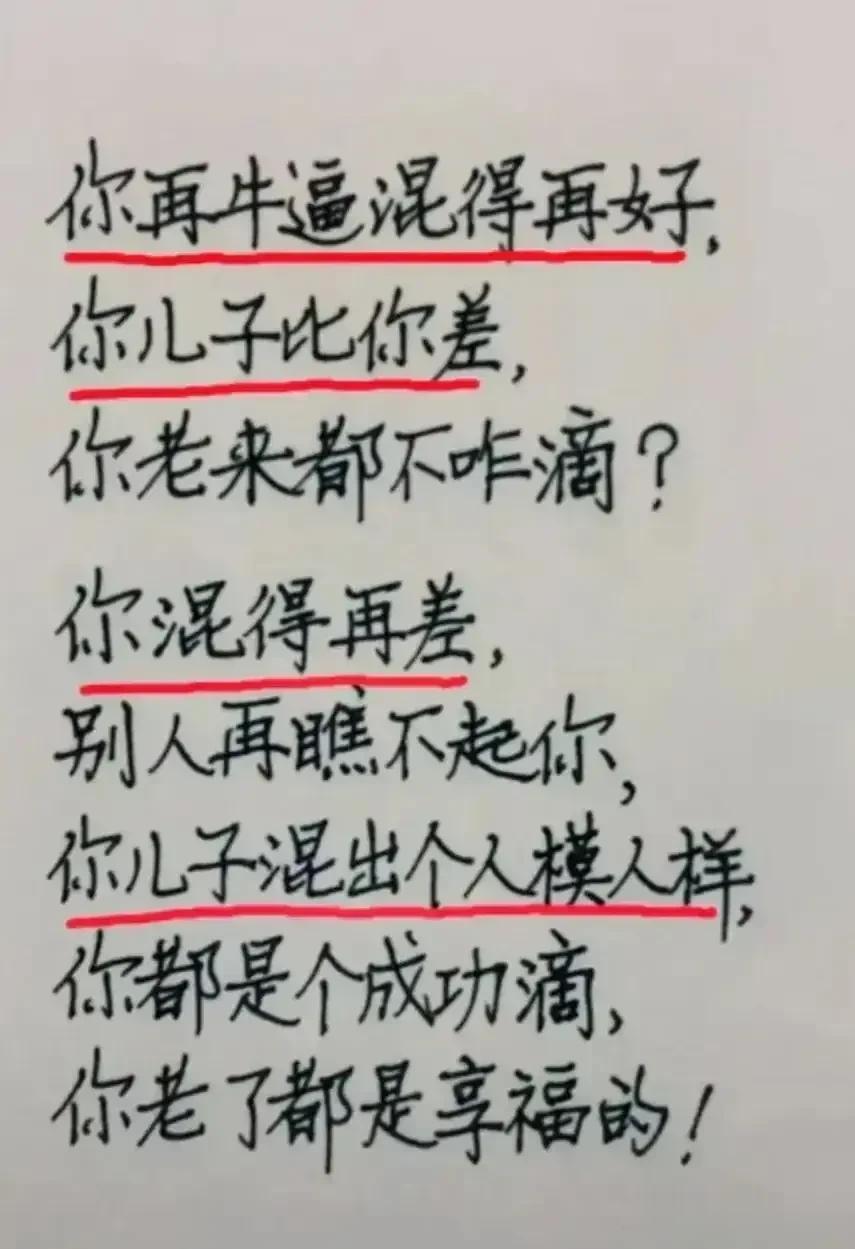 你再牛逼混得再好,
你儿子比你差,
你老来都不咋滴?
你混得再差,
别人再瞧不起你,
你儿子混出个人模人样,
你都是个成功滴,
你老了都是享福的!